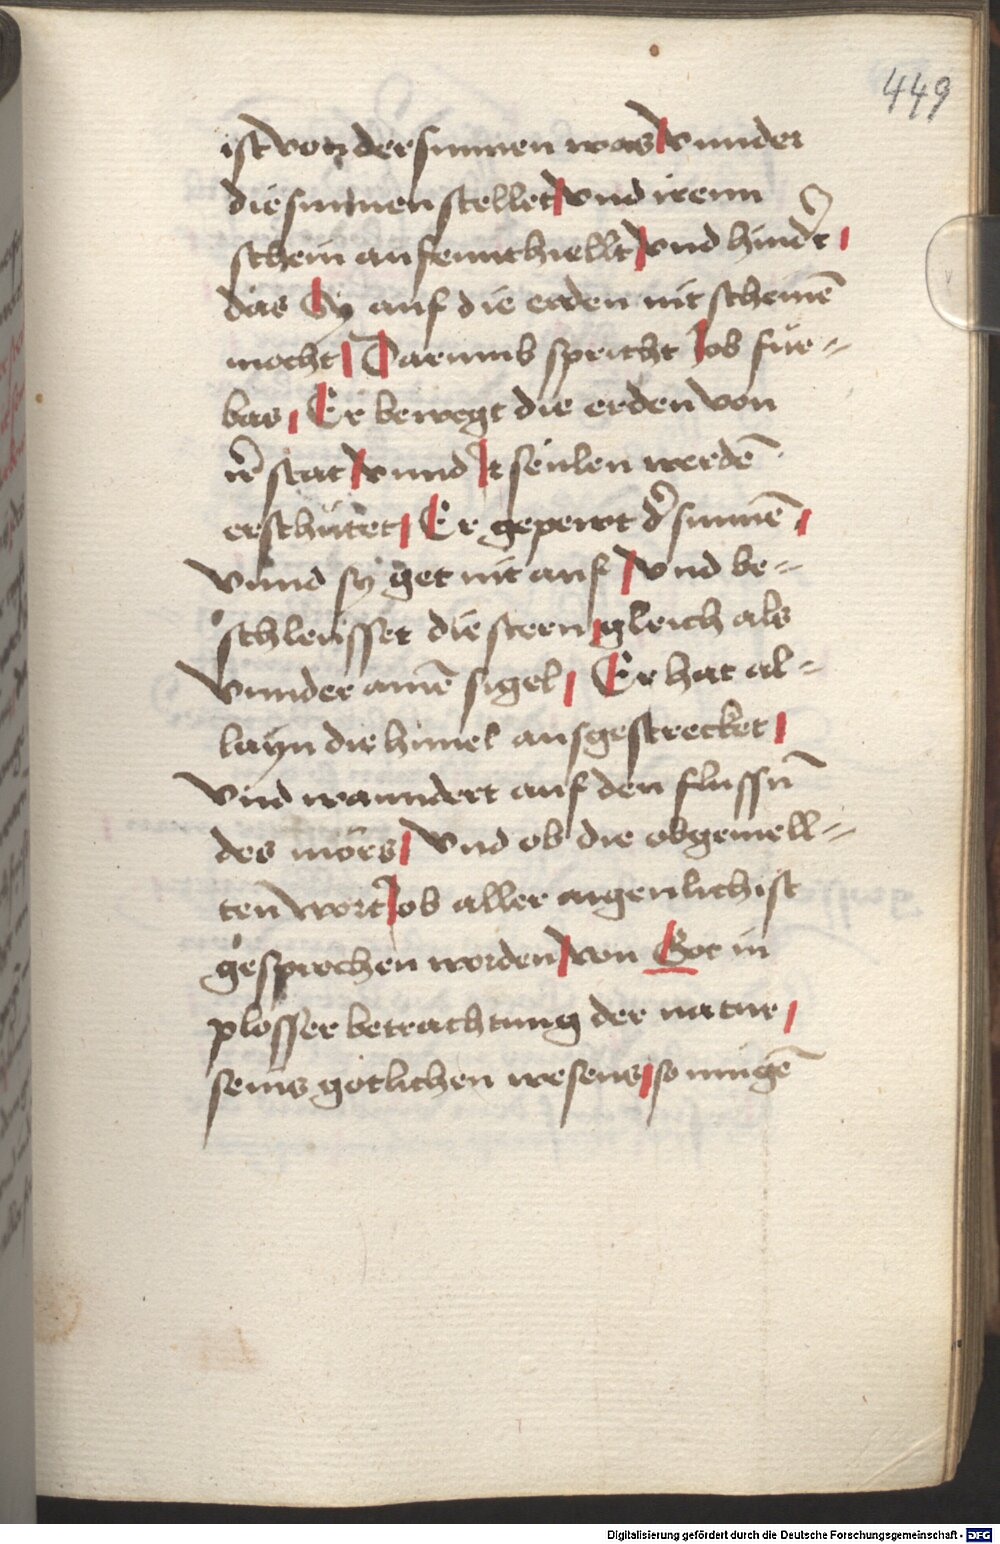 449
ist von der sunnen was vnnder
die sunnen stellet vnd irenn
schein aufennthiellt vnd hindʼt
das Sy auf die erden nit scheinē
mocht Darumb spricht Job für-
bas Er bewegt die erden von
irʼ stat vnnd Ir seülen werdē
erschütet Er gepewt dʼ sunnē
vnnd sy get nit auf vnd be-
schleüsset die stern gleich als
vnnder ainē sigel Er hat al-
layn die himel ausgestrecket
vnd wanndert auf den flussn̄
des mörs vnd ob die obgemell-
ten wort Job aller aigenlichist
gesprochen worden von Got in
plosser betrachtung der natur
seins gotlichen wesens so mügē
Digitalisierung gefördert durch die Deutsche Forschungsgemeinschaft - DFG